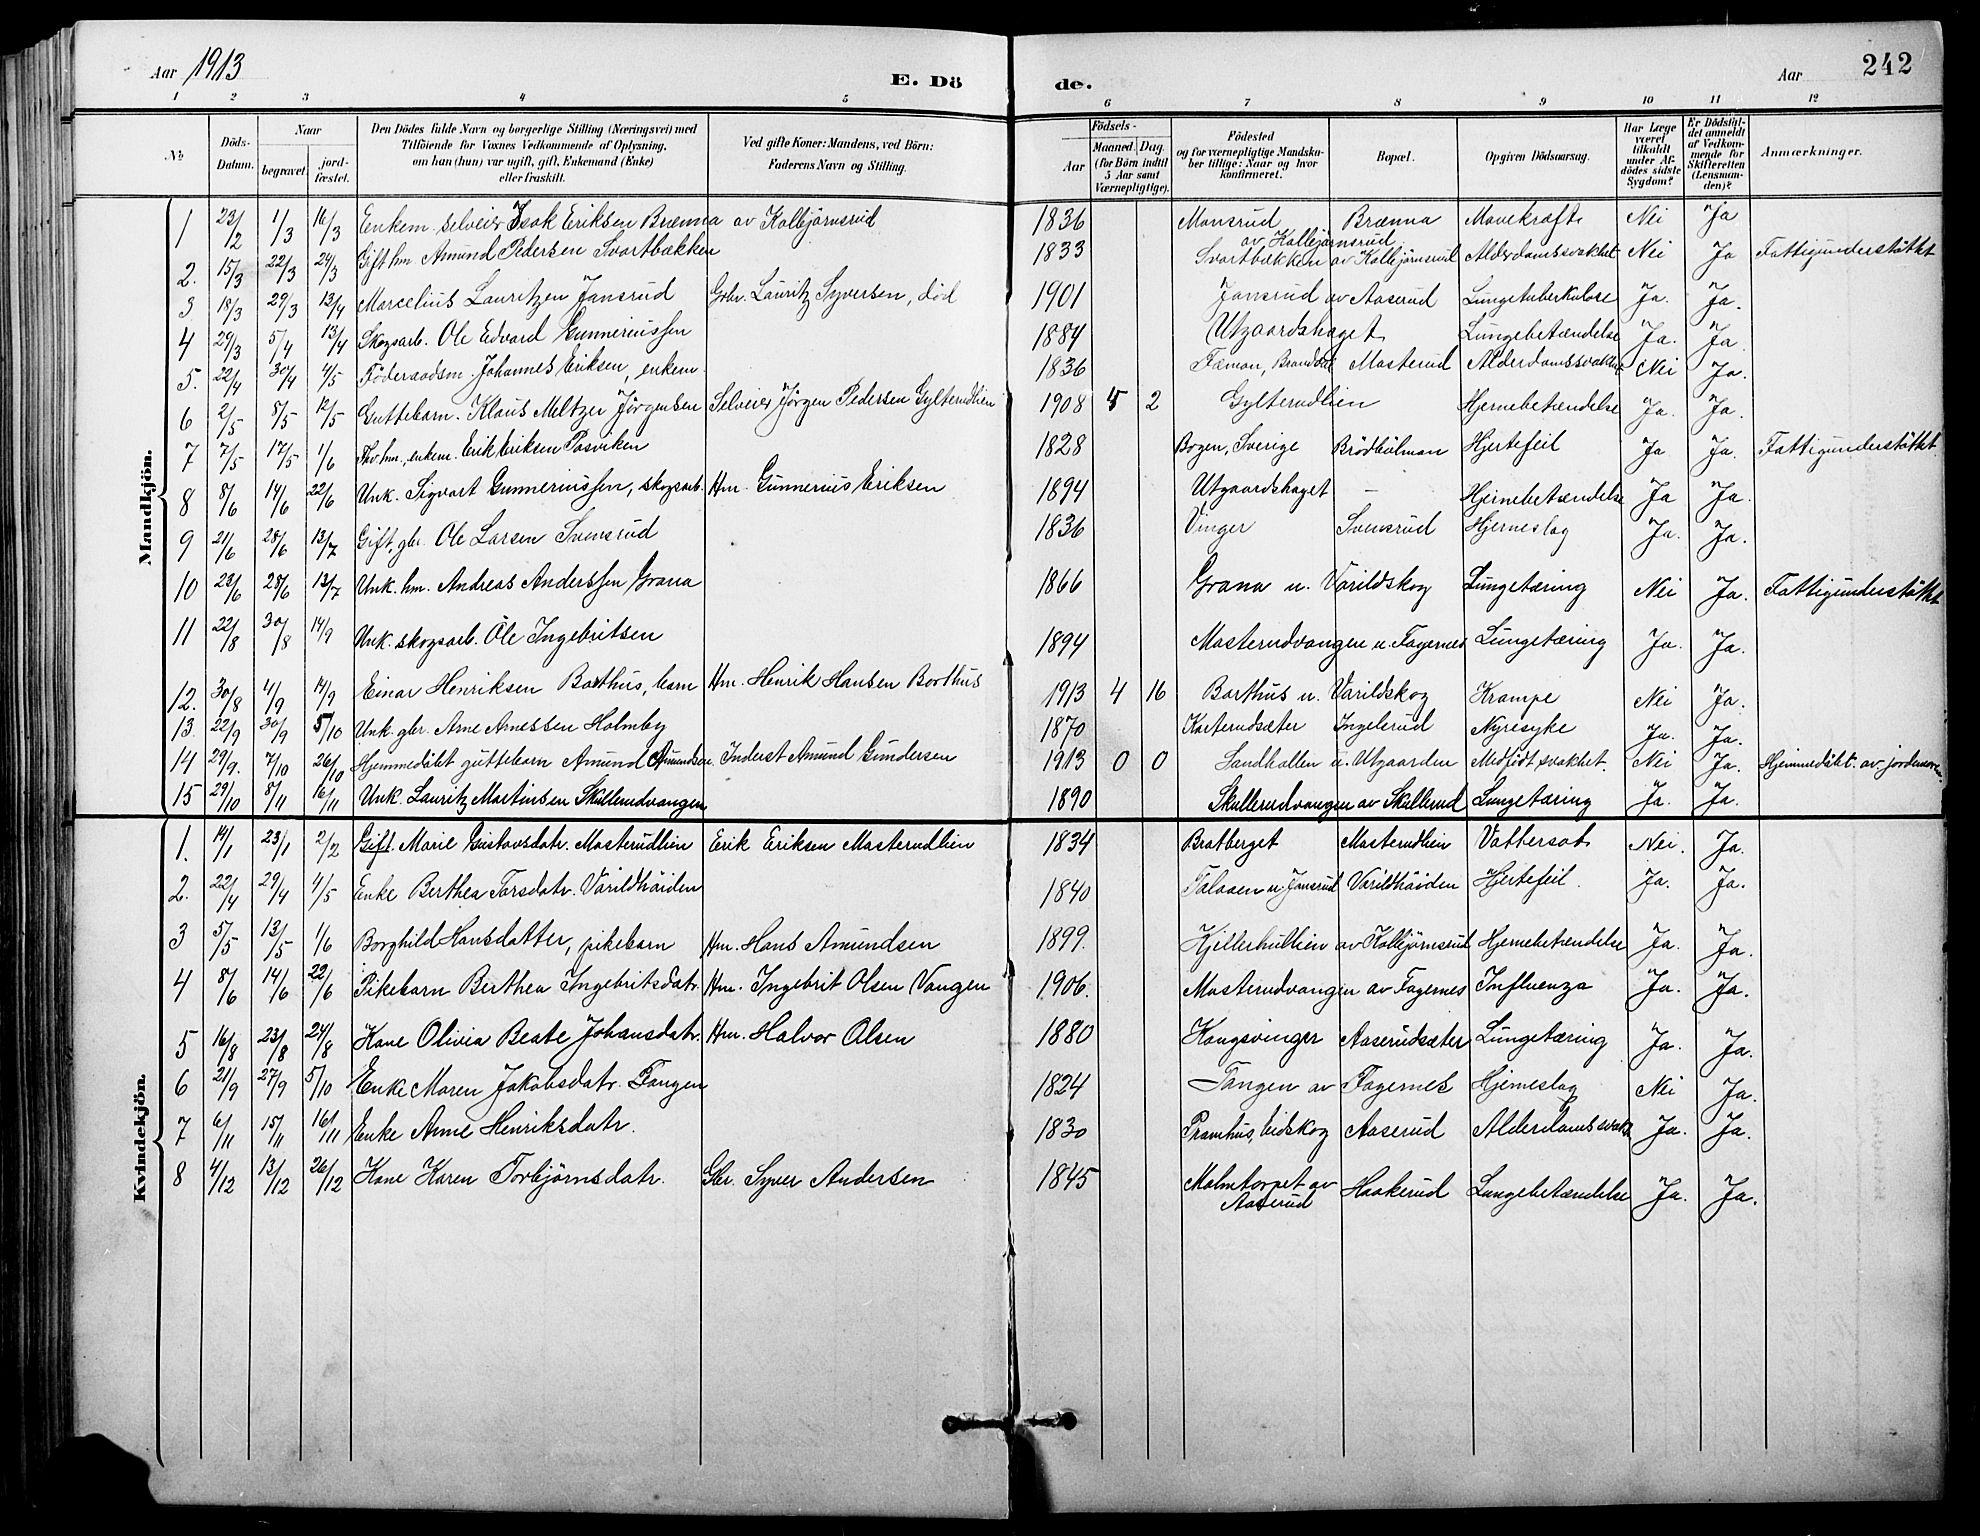 Aar 1913 E. Dö de. Aar 242
1 2 3 4 5 6 7 8 9 10 11 12
No Döds-Datum. Naar begravet. jord-fæstet. Den Dödes fulde Navn og borgerlige Stilling (Næringsvei) med Tilföiende for Voxnes Vedkommende af Oplysning, om han (hun) var ugift, gift, Enkemand (Enke) eller fraskilt. Ved gifte Koner: Mandens, ved Börn: Faderens Navn og Stilling. Födsels- Aar Maaned. Dag. (for Börn indtil 5 Aar samt Værnepligtige). Födested og for værnepligtige Mandskaber tillige: Naar og hvor konfirmeret. Bopæl. Opgiven Dödsaarsag. Har Læge været tilkaldt under Afdödes sidste Sygdom? Er Dödsfaldet anmeldt af Vedkommende for Skifteretten (Lensmanden)? Anmærkninger.
Mandkjön.
1 23/2 1/3 16/3 Enkem. selveier Isak Eriksen Brænna av Kolbjörnsrud 1836 Mansrud av Kolbjörnsrud Brænna Mavekræft Nei Ja
2. 15/3 22/3 24/3 Gift hm. Amund Pedersen Svartbækken 1833 Svartbækken av Kolbjørnsrud Alderdomssvakhet Nei Ja Fattigunderstøttet
3 18/3 29/3 13/4 Marcelius Lauritzen Jansrud Gbr. Lauritz Syversen, död 1901 Jansrud av Aaserud Lungetuberkulose Ja. Ja.
4 29/3 5/4 13/4 Skogsarb. Ole Edvard Gunneriussen 1884 Utgaardshaget Lungebetændelse Ja. Ja.
5. 22/4 30/4 4/5 Föderaadsm. Johannes Eriksen, enkem. 1836 Masterud Alderdomssvakhet Nei Ja.
6 2/5 8/5 12/5 Guttebarn. Klaus Meltzer Jörgensen Selveier Jörgen Pedersen Gylterudlien 1908 5 2 Gylterudlien Hjernebetændelse Ja. Ja.
7 7/5 17/5 1/6 Fhv. hm., enkem. Erik Eriksen Pasviken 1828 Bogen, Sverige Brödbölman Hjertefeil Ja Ja. Fattigunderstøttet
8 8/6 14/6 22/6 Unk. Sigvart Gunneriussen, skogsarb. Hm. Gunnerius Eriksen 1894 Utgaardshaget – Hjernebetændelse Ja Ja.
9 21/6 28/6 13/7 Gift, gbr. Ole Larsen Svensrud 1836 Vinger Svensrud Hjerneslag Ja. Ja.
10 23/6 28/6 13/7 Unk. hm. Andreas Anderssen Grana 1866 Grana u. Varildskog Lungetæring Nei Ja. Fattigunderstøttet
11 22/8 30/8 14/9 Unk. skogsarb. Ole Ingebritsen 1894 Masterudvangen u. Fagernes Lungetæring Ja. Ja.
12. 30/8 4/9 14/9 Einar Henriksen Borthus, barn Hm. Henrik Hansen Borthus 1913 4 16 Borthus u. Varildskog Krampe Nei Ja.
13. 22/9 30/9 5/10 Unk. gbr. Arne Arnessen Holmby 1870 Karterudsæter Ingelsrud Nyresyke Ja. Ja.
14 29/9. 7/10 26/10 Hjemmedöbt guttebarn Amund Amundsen. Inderst Amund Gundersen 1913 0 0 Sandhollen u. Utgaarden Medfödt svakhet. Nei Ja. Hjemmedöbt av jordemoren.
15 29/10 8/11 16/11 Unk. Lauritz Martinsen Skullerudvangen 1890 Skullerudvangen av Skullerud Lungetæring Ja. Ja.
Kvindekjön.
1. 14/1 23/1 2/2 Gift. Marie Gustavsdatr. Masterudlien Erik Eriksen Masterudlien 1834 Bratberget Masterudlien Vattersot Nei. Ja.
2. 22/4 29/4 4/5 Enke Berthea Tarsdatr. Varildhöiden 1840 u. Jansrud Varildhöiden Hjertefeil. Ja. Ja.
3 5/5 13/5 1/6 Borghild Hansdatter, pikebarn Hm. Hans Amundsen 1899. Kjillerhultien av Kolbjørnsrud Hjernebetændelse Ja. Ja.
4 8/6 14/6 22/6 Pikebarn Berthea Ingebritsdatr. Hm. Ingebrit Olsen Vangen 1906. Masterudvangen av Fagernes Influenza Ja. Ja.
5 16/8 23/8 24/8 Kone Olivia Beate Johansdatr. Hm. Halvor Olsen 1880 Kongsvinger Aaserudsæter Lungetæring Ja. Ja.
6 21/9 27/9 5/10 Enke Maren Jakobsdatr. Tangen 1824 Tangen av Fagernes Hjerneslag Nei Ja.
7 6/11 15/11 16/11 Enke Anne Henriksdatr. 1830 Pramhus, Eidskog Aaserud Alderdomssvakh. Ja. Ja.
8 4/12 13/12 26/12 Kone Karen Torbjörnsdatr. Gbr. Syver Andersen 1845 Malmtorpet av Aaserud Haakerud Lungebetændelse Ja. Ja.